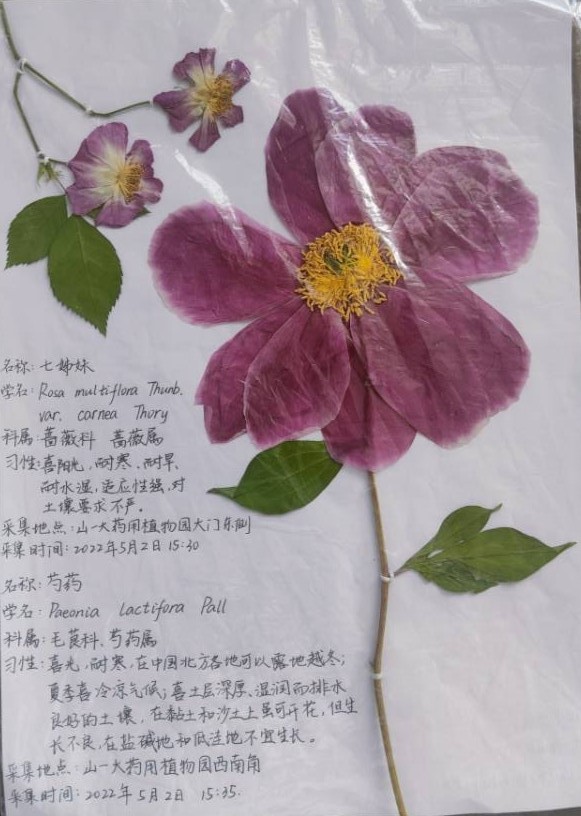 名称: 七姊妹
学名: Rosa multiflora Thunb.
var. carnea Thory
科属: 蔷薇科 蔷薇属
习性: 喜阳光, 耐寒, 耐旱,
耐水湿, 适应性强, 对
土壤要求不严。
采集地点: 山一大药用植物园大门东侧
采集时间: 2022年5月2日 15:30
名称: 芍药
学名: Paeonia lactifora Pall
科属: 毛茛科、芍药属
习性: 喜光, 耐寒, 在中国北方各地可以露地越冬;
夏季喜冷凉气候; 喜土层深厚、湿润而排水
良好的土壤, 在黏土和沙土上虽可开花, 但生
长不良, 在盐碱地和低洼地不宜生长。
采集地点: 山一大药用植物园西南角
采集时间: 2022年5月2日 15:35.